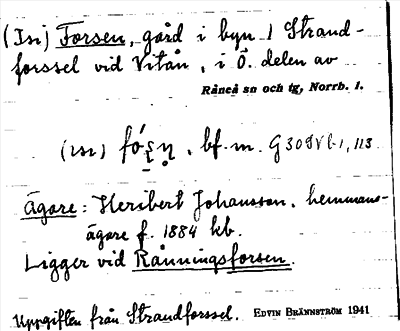 (Isi) Forsen, gård i byn 1 Strand-
forssel vid Vitån, i Ö. delen av
Råneå sn och tg, Norrb. l.
(isi) fó̱ṣṇ, bf. m. G30 I Vb1, 113
Ägare: Heribert Johansson, hemmans-
ägare f. 1884 hb.
Ligger vid Rånningsforsen.
Uppgiften från Strandforssel. EDVIN BRÄNNSTRÖM 1941